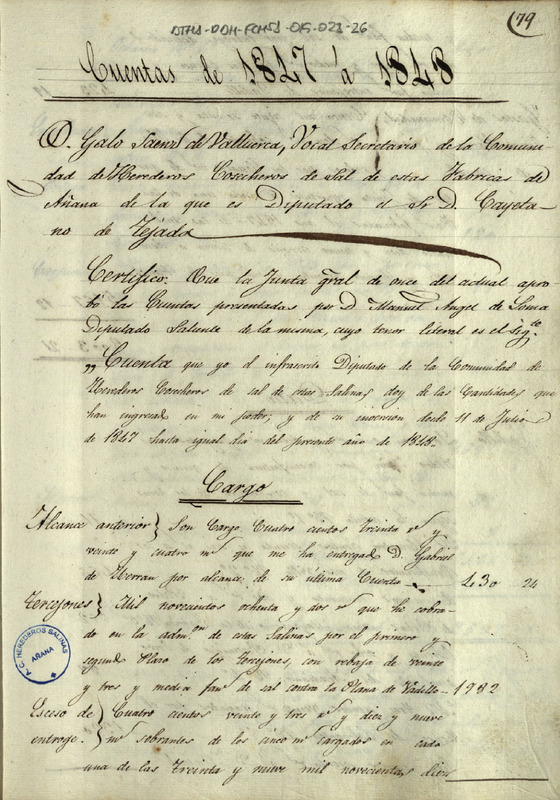 ATHA-DOH-FCHSA-015-023-26
79
Cuentas de 1847 a 1848
D. Galo Saenz de Valluerca, Vocal Secretario de la Comuni-
dad de Herederos Cosecheros de Sal de estas Fabricas de
Añana de la que es Diputado el Sr D. Cayeta-
no de Tejada
Certifico: Que la Junta gral de once del actual apro-
bó las Cuentas presentadas por D Manuel Angel de
Diputado Saliente de la misma, cuyo tenor literal es el segte
„Cuenta que yo el infrascrito Diputado de la Comunidad de
Herederos Cosecheros de sal de estas Salinas doy de las Cantidades que
han ingresado en mi poder, y de su inversion desde 11 de Julio
de 1847 hasta igual dia del presente año de 1848.
Cargo
Alcance anterior } Son Cargo Cuatro cientos treinta rs y
veinte y cuatro ms que me ha entregado D. Gabriel
de Herran por alcance de su última Cuenta 430 24
Tercejones } Mil novecientos ochenta y dos rs que he cobra-
do en la admon de estas Salinas por el primero y
segundo Plazo de los Tercejones, con rebaja de veinte
y tres y media fans de sal contra la Plana de Vadillo 1982
Esceso de } Cuatro cientos veinte y tres rs y diez y nueve
entrege. } ms sobrantes de los cinco ms cargados en cada
una de las treinta y nueve mil novecientas diez
A.C. HEREDEROS SALINAS
AÑANA